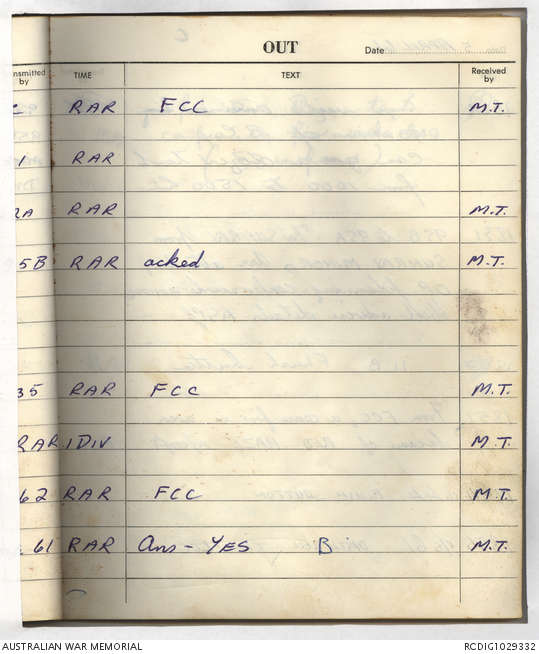 OUT
Date
nsmitted by TIME TEXT Received by
C RAR FCC M.T.
1 RAR
RA RAR M.T.
5B RAR acked M.T.
35 RAR FCC M.T.
RAR 1 DIV M.T.
62 RAR FCC M.T.
61 RAR Ans - YES B M.T.
AUSTRALIAN WAR MEMORIAL RCDIG1029332